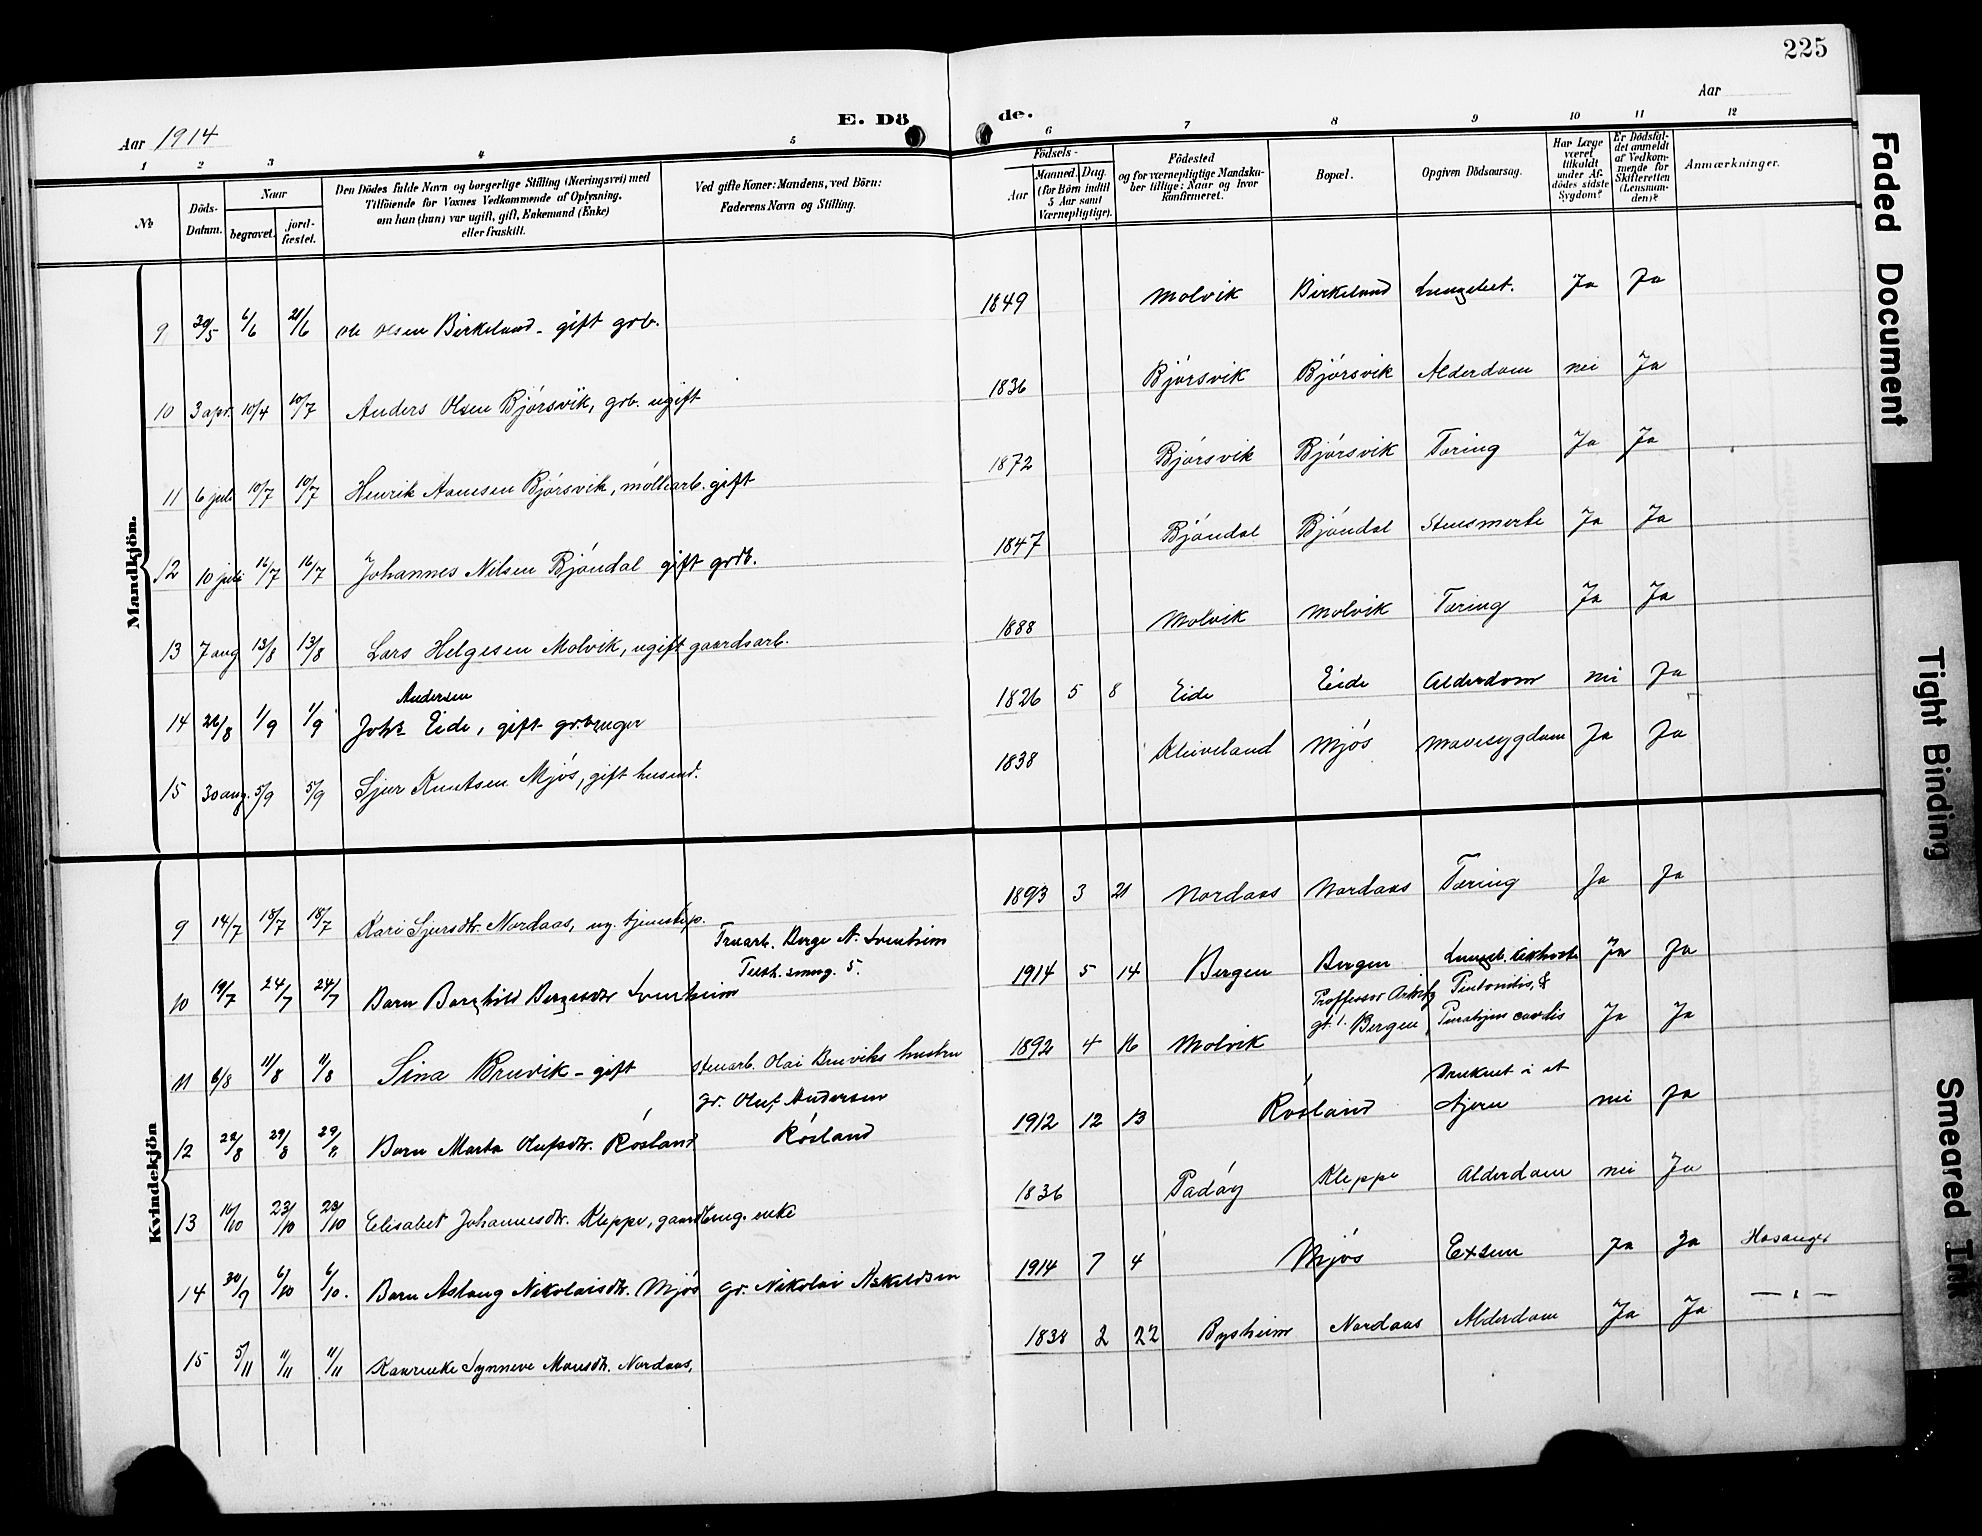 225
Aar 1914
E. Dö
de.
Aar
1 2 3 4 5 6 7 8 9 10 11 12
No
Döds-Datum.
Naar begravet. jordfæstet.
Den Dödes fulde Navn og borgerlige Stilling (Næringsvei) med
Tilföiende for Voxnes Vedkommende af Oplysning,
om han (hun) var ugift, gift, Enkemand (Enke)
eller fraskilt.
Ved gifte Koner: Mandens, ved Börn:
Faderens Navn og Stilling.
Födsels-
Aar
Maaned. Dag.
(for Börn indtil
5 Aar samt
Værnepligtige).
Födested
og for værnepligtige Mandska-
ber tillige: Naar og hvor
konfirmeret.
Bopæl.
Opgiven Dödsaarsag.
Har Læge
været
tilkaldt
under Af-
dödes sidste
Sygdom?
Er Dödsfal-
det anmeldt
af Vedkom-
mende for
Skifteretten
(Lensman-
den)?
Anmærkninger.
Mandkjön.
9 30/5 6/6 21/6 Ole Olsen Birkeland - gift grb. 1849 Molvik Birkeland Lungebet. Ja Ja
10 3 apr. 10/4 10/7 Anders Olsen Bjórsvik, grb. ugift 1836 Bjórsvik Bjórsvik Alderdom nei Ja
11 6 juli 10/7 10/7 Henrik Bjórsvik, gift 1872 Bjórsvik Bjórsvik Tæring Ja Ja
12 10 juli 16/7 16/7 Johannes Nilsen Bjóndal gift grdb. 1847 Bjóndal Bjóndal Ja Ja
13 7 aug 13/8 13/8 Lars Helgesen Molvik, ugift gaardsarb. 1888 Molvik Molvik Tæring Ja Ja
Andersen
14 26/8 1/9 1/9 Johs Eide, gift gr.bruger 1826 5 8 Eide Eide Alderdom nei Ja
15 30 aug. 5/9 5/9 Sjur Knutsen Mjós, gift husmd. 1838 Kleiveland Mjós Mavesygdom Ja Ja
Kvindekjön
9 14/7 18/7 18/7 Kari Sjursdtr. Nordaas, ug. tjenestep. 1893 3 21 Nordaas Nordaas Tæring Ja Ja
Berge N.
10 19/7 24/7 24/7 Barn Borghild Bergesdtr 1914 5 14 Bergen Bergen Ja Ja
11 6/8 11/8 11/8 Sina Bruvik - gift Olai Bruviks hustru 1892 4 16 Molvik Bergen cordis Ja Ja
gr. Oluf Andersen
Druknet i et
12 22/8 29/8 29/8 Barn Marta Olufsdtr. Rósland Rósland 1912 12 13 Rósland tjern nei Ja
13 16/10 23/10 23/10 Elisabet Johannesdtr. Kleppe, gaardbrug. enke 1836 Padóy Kleppe Alderdom nei Ja
14 30/9 6/10 6/10. Barn Aslaug Nikolaisdtr. Mjós gr. Nikolai Askildsen 1914 7 4 Mjós Exsem Ja Ja Hosanger
15 5/11 11/11 11/11 Synneve Monsdtr. Nordaas, 1838 2 22 Bysheim Nordaas Alderdom Ja Ja — " —
Faded Document
Tight Binding
Smeared Ink